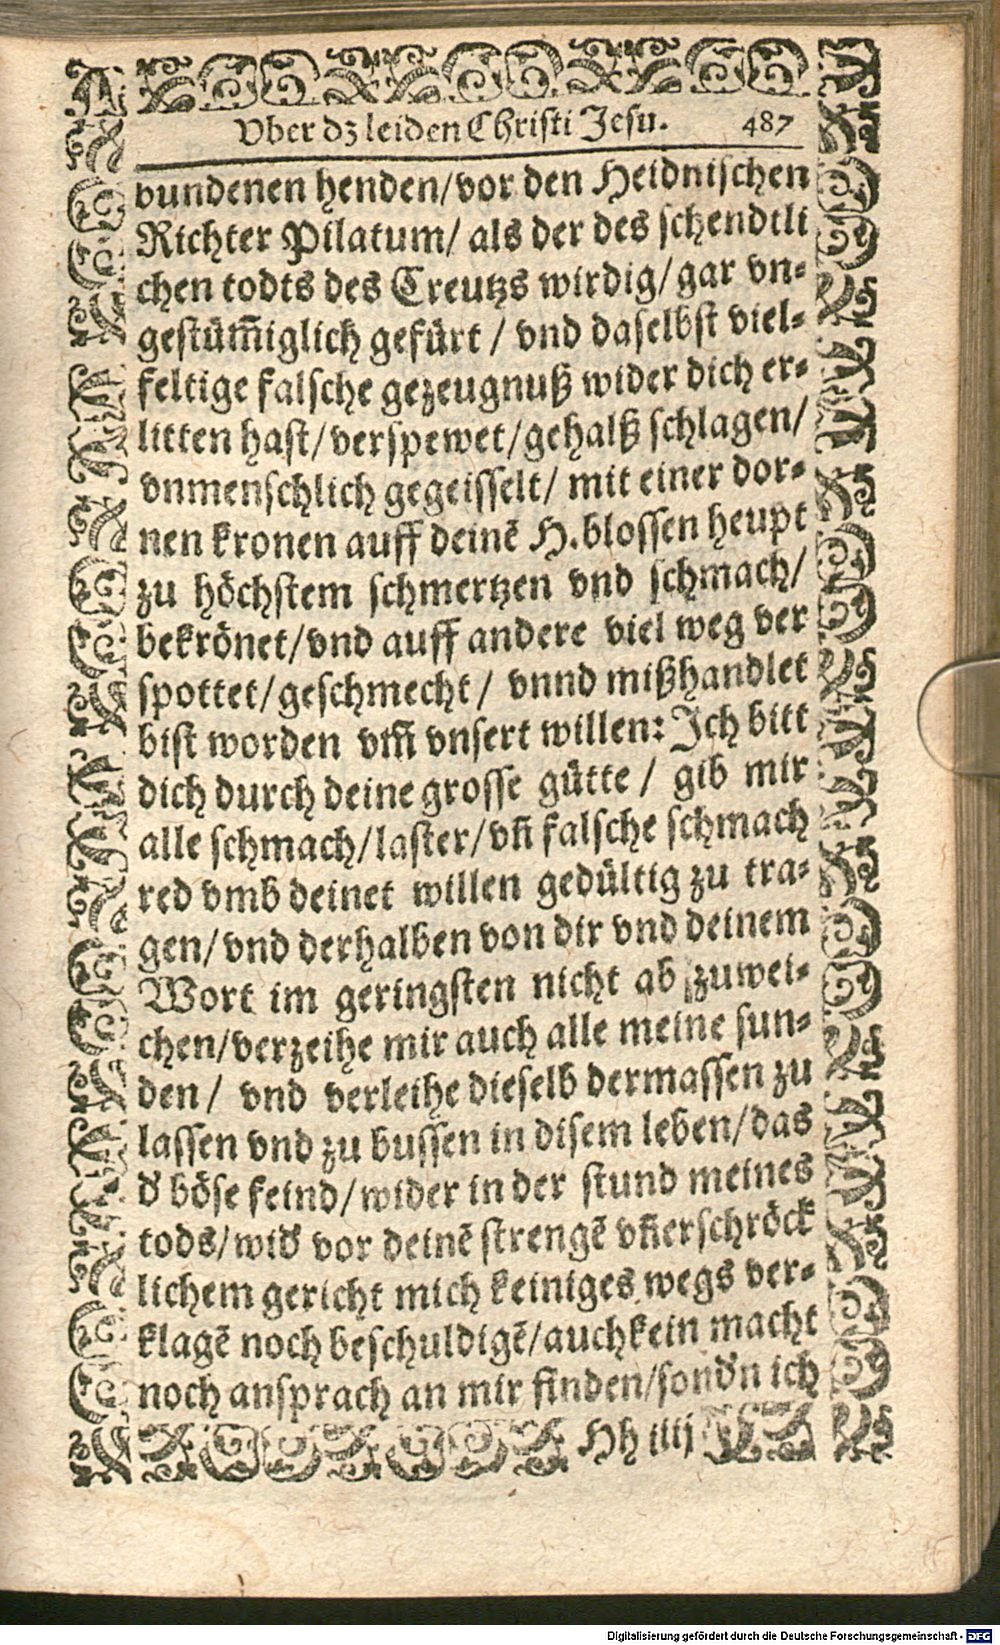 Vber dz leiden Christi Jesu. 487
bundenen henden/vor den Heidnischen
Richter Pilatum/ als der des schendtli
chen todts des Creutzs wirdig/gar vn-
gestüm̃iglich gefürt / vnd daselbst viel-
feltige falsche gezeugnuß wider dich er-
litten hast/verspewet/gehalß schlagen/
vnmenschlich gegeisselt/ mit einer dor-
nen kronen auff deinẽ H.blossen heupt
zu höchstem schmertzen vnd schmach/
bekrönet/vnd auff andere viel weg ver
spottet/geschmecht/ vnnd mißhandlet
bist worden vm̃ vnsert willen: Ich bitt
dich durch deine grosse gütte / gib mir
alle schmach/laster/vñ falsche schmach
red vmb deinet willen gedültig zu tra-
gen/vnd derhalben von dir vnd deinem
Wort im geringsten nicht ab zuwei-
chen/verzeihe mir auch alle meine sun-
den/ vnd verleihe dieselb dermassen zu
lassen vnd zu bussen in disem leben/das
d' böse feind/wider in der stund meines
tods/wid' vor deinẽ strengẽ vñerschröck
lichem gericht mich keiniges wegs ver-
klagẽ noch beschuldigẽ/auchkein macht
noch ansprach an mir finden/sond'n ich
Hh iiij
Digitalisierung gefördert durch die Deutsche Forschungsgemeinschaft - DFG